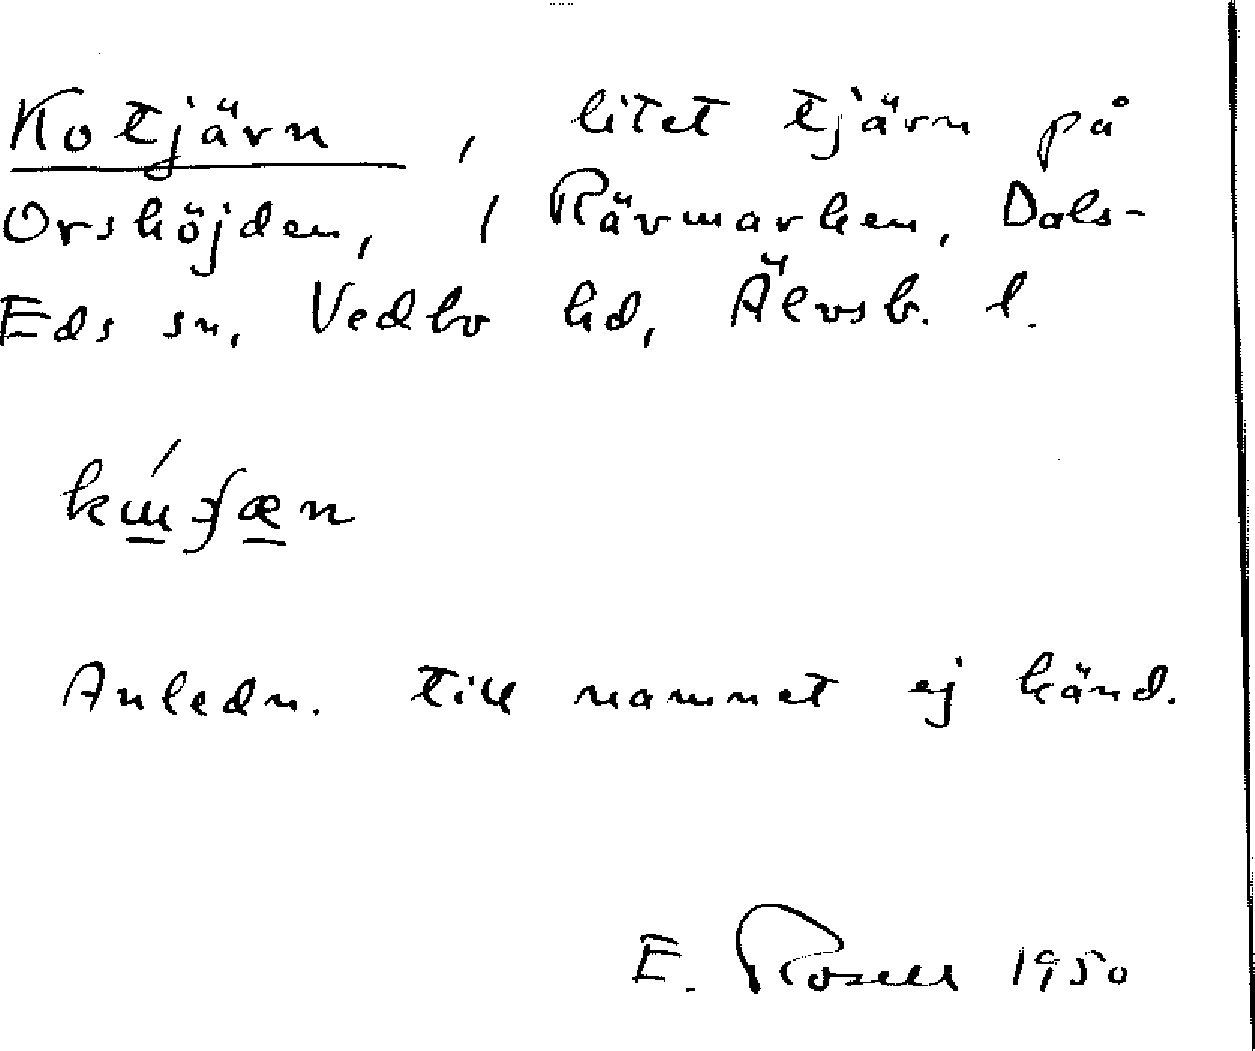 Kotjärn, litet tjärn på
Orshöjden, i Rävmarken, Dals-
Eds sn, Vedbo hd, Älvsb. l.
Anledn. till namnet ej känd.
E. Rosell 1950